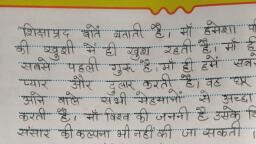 शिक्षाप्रद बातें बताती है। माँ हमेशा
की खुशी में ही खुश रहती है। माँ ही
सबसे पहली गुरू है, माँ ही हमें सबसे
प्यार और दुलार करती है। वह घर
आने वाले सभी मेहमानों से अच्छा
करती है। माँ विश्व की जननी है उसके
संसार की कल्पना भी नहीं की जा सकती।